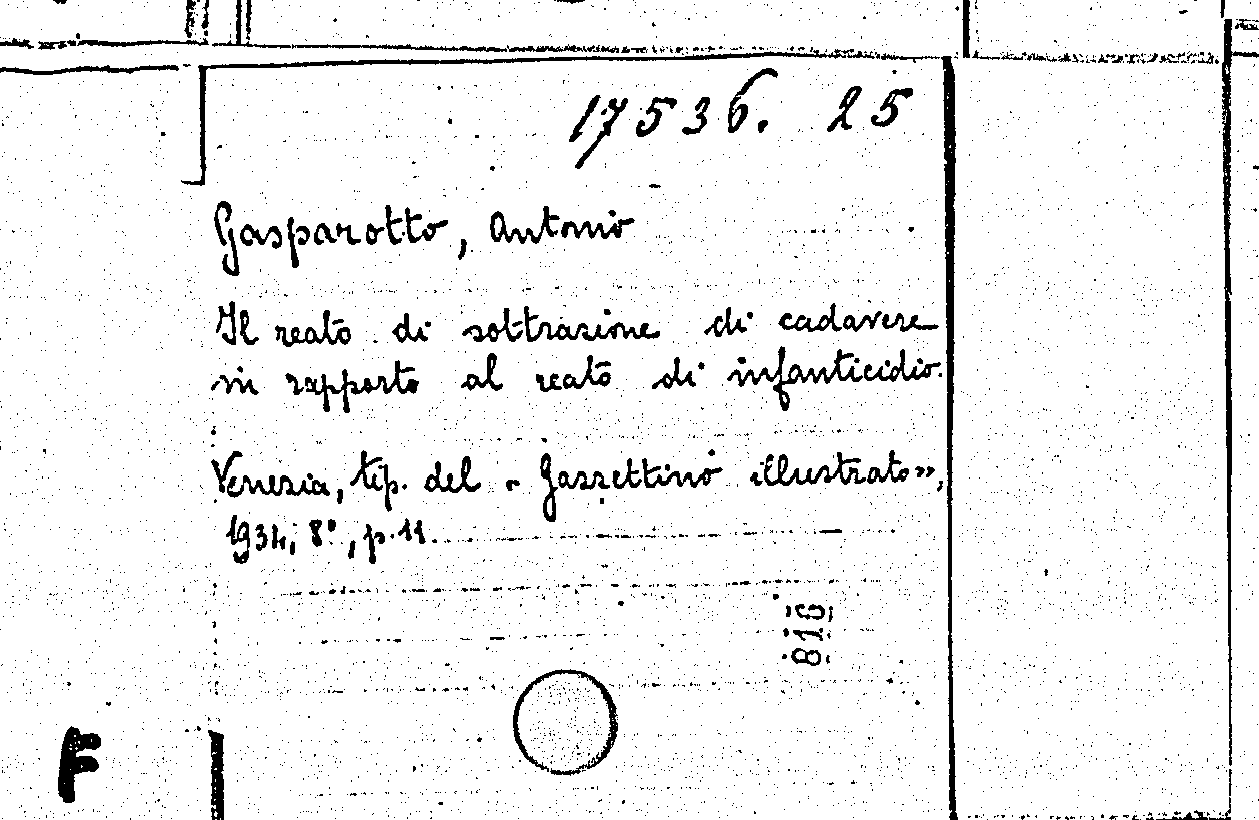 17536. 25
Gasparotto, Antonio
Il reato di sottrazione di cadavere
in rapporto al reato di infanticidio.
Venezia, tip. del « Gazzettino illustrato»,
1934, 8°, p. 11.
816
F